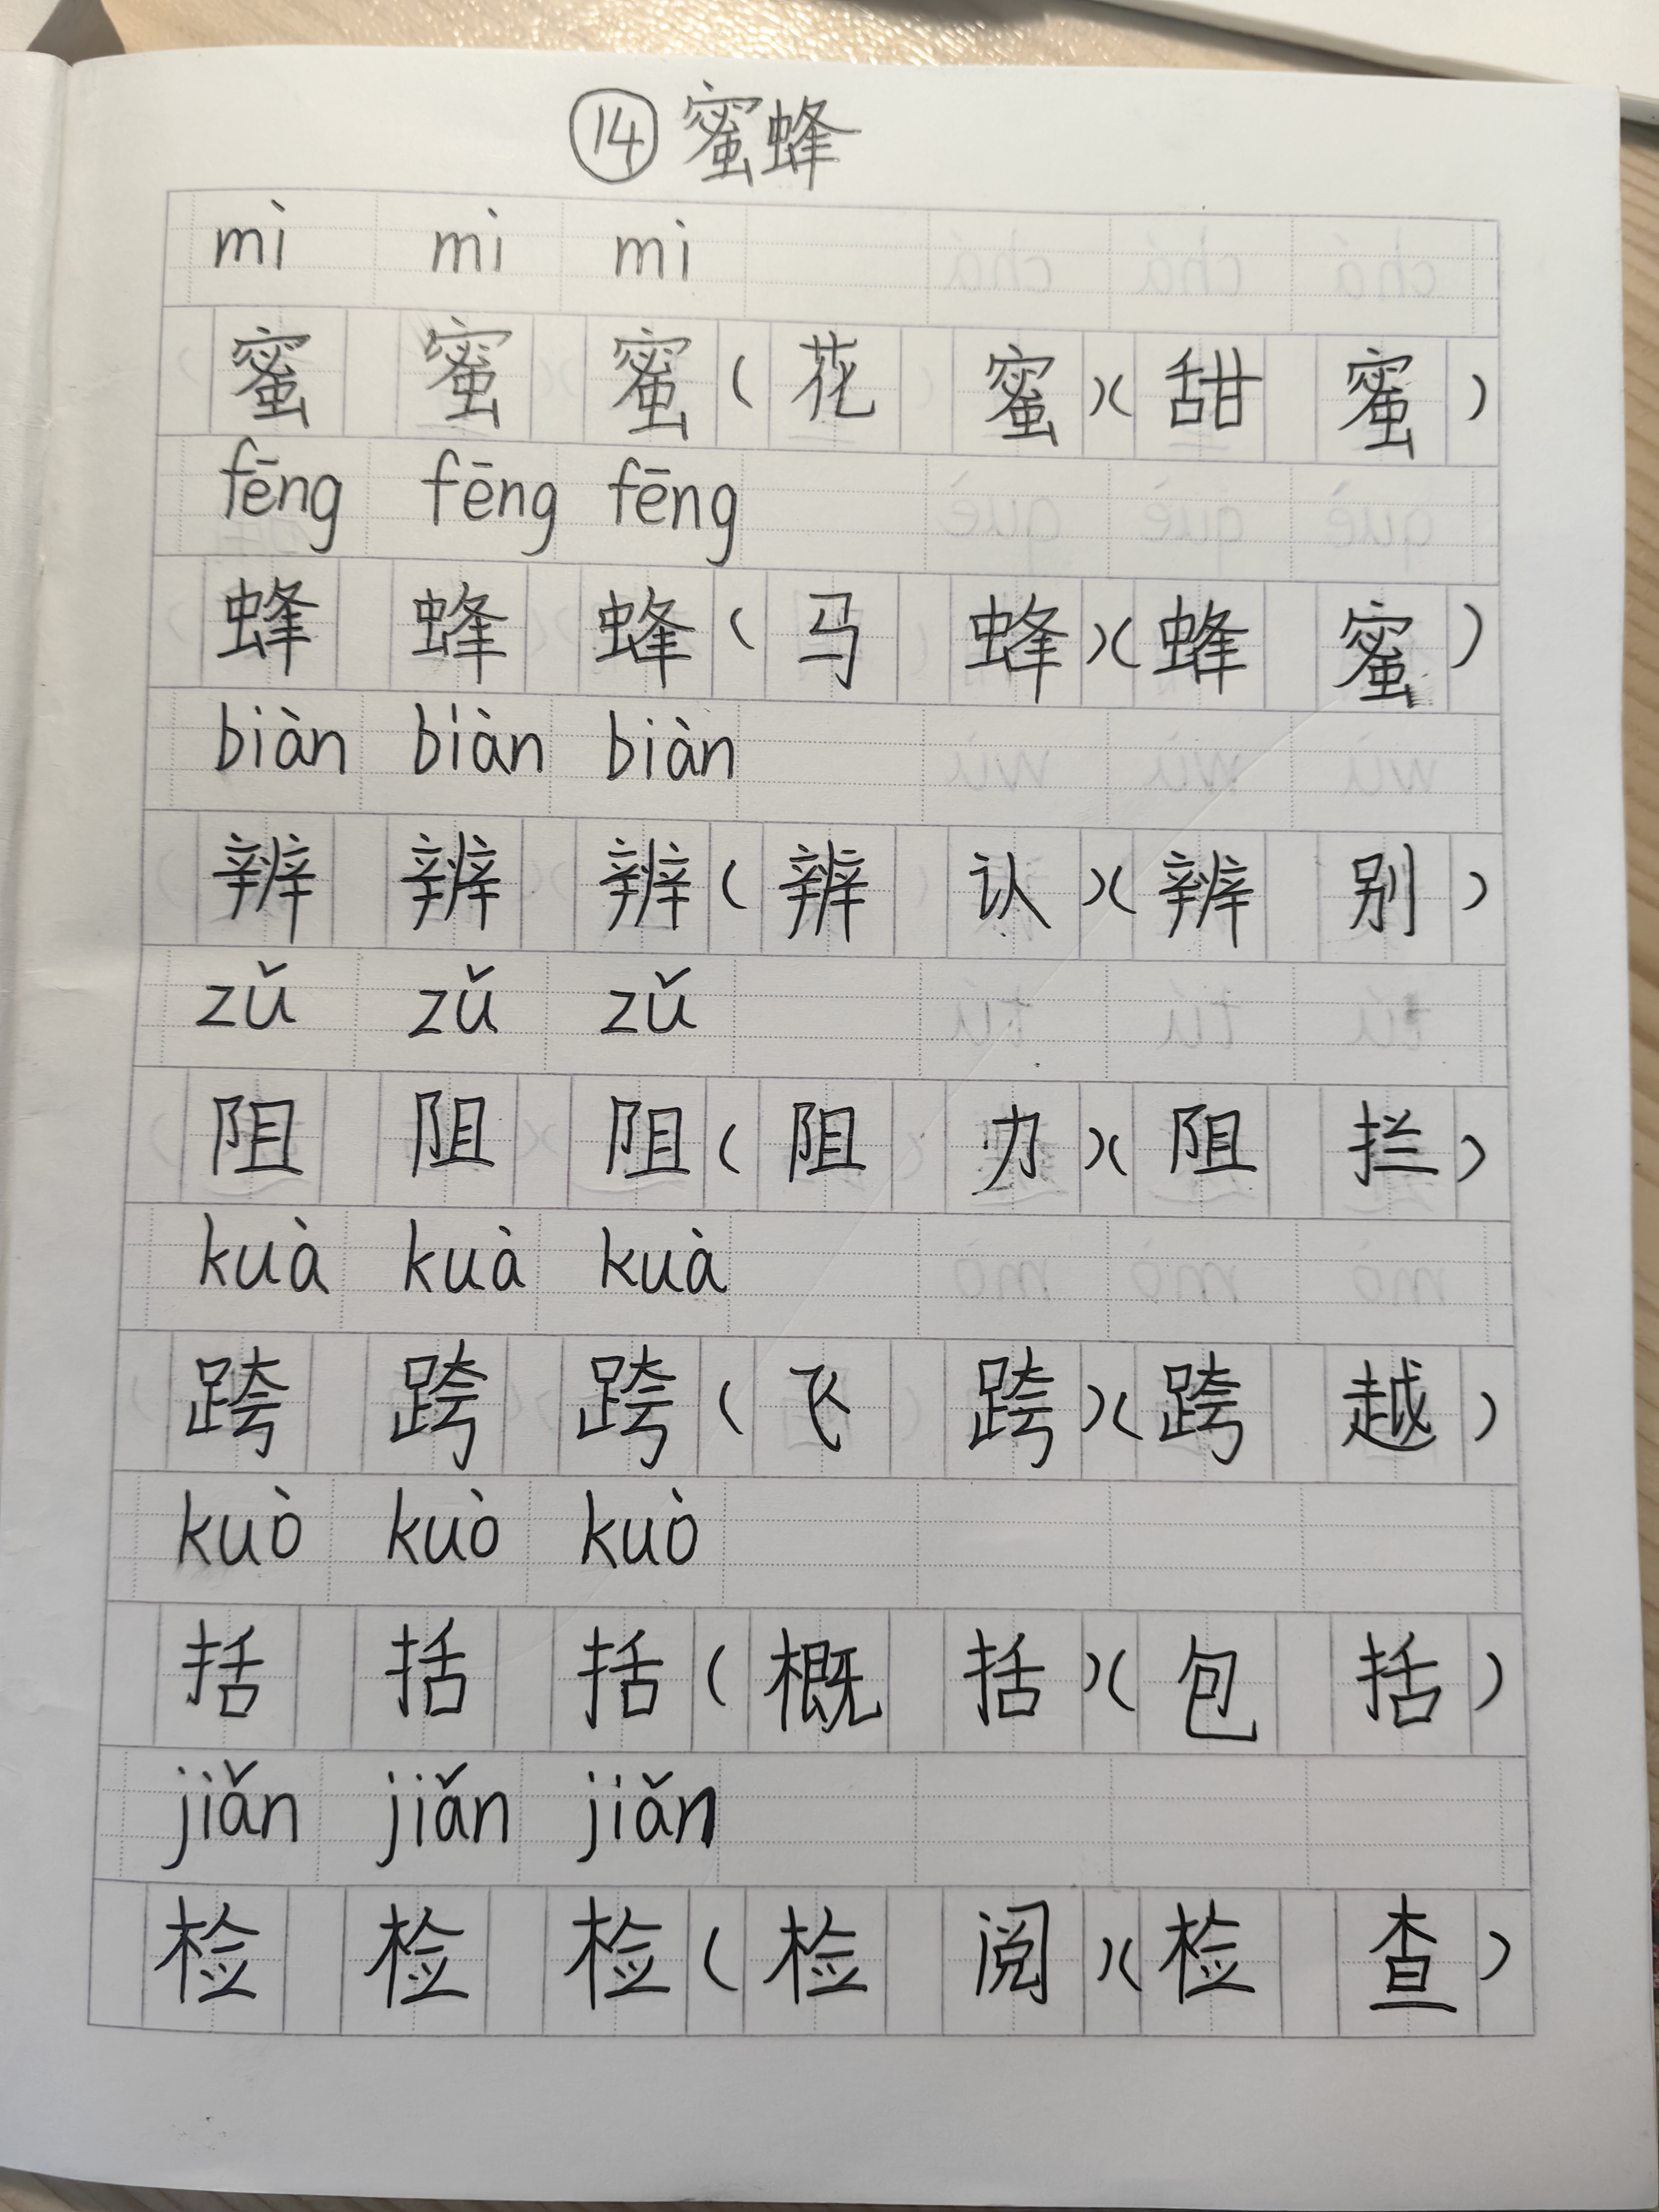 ⑭ 蜜蜂
mì mì mì
蜜 蜜 蜜 ( 花 蜜 ) ( 甜 蜜 )
fēng fēng fēng
蜂 蜂 蜂 ( 马 蜂 ) ( 蜂 蜜 )
biàn biàn biàn
辨 辨 辨 ( 辨 认 ) ( 辨 别 )
zǔ zǔ zǔ
阻 阻 阻 ( 阻 力 ) ( 阻 拦 )
kuà kuà kuà
跨 跨 跨 ( 飞 跨 ) ( 跨 越 )
kuò kuò kuò
括 括 括 ( 概 括 ) ( 包 括 )
jiǎn jiǎn jiǎn
检 检 检 ( 检 阅 ) ( 检 查 )